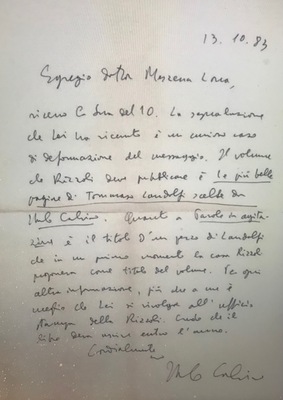 13.10.83
Egregio dottor Mezzena Lona,
ricevo la Sua del 10. La segnalazione
che Lei ha ricevuto è un curioso caso
di deformazione del messaggio. Il volume
che Rizzoli deve pubblicare è Le più belle
pagine di Tommaso Landolfi scelte da
Italo Calvino. Quanto a Parole in agita-
zione è il titolo d'un pezzo di Landolfi
che in un primo momento la casa Rizzoli
proponeva come titolo del volume. Per ogni
altra informazione, più che a me è
meglio che Lei si rivolga all'ufficio
stampa della Rizzoli. Credo che il
libro deva uscire entro l'anno.
Cordialmente
Italo Calvino